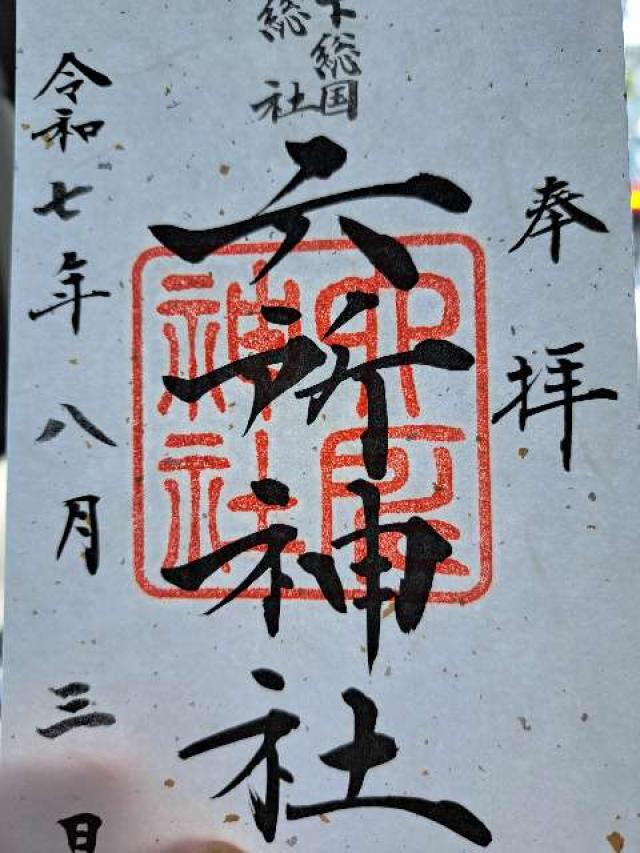 奉拝
下総国
総社
六所神社
六所
神社
令和七年八月三日